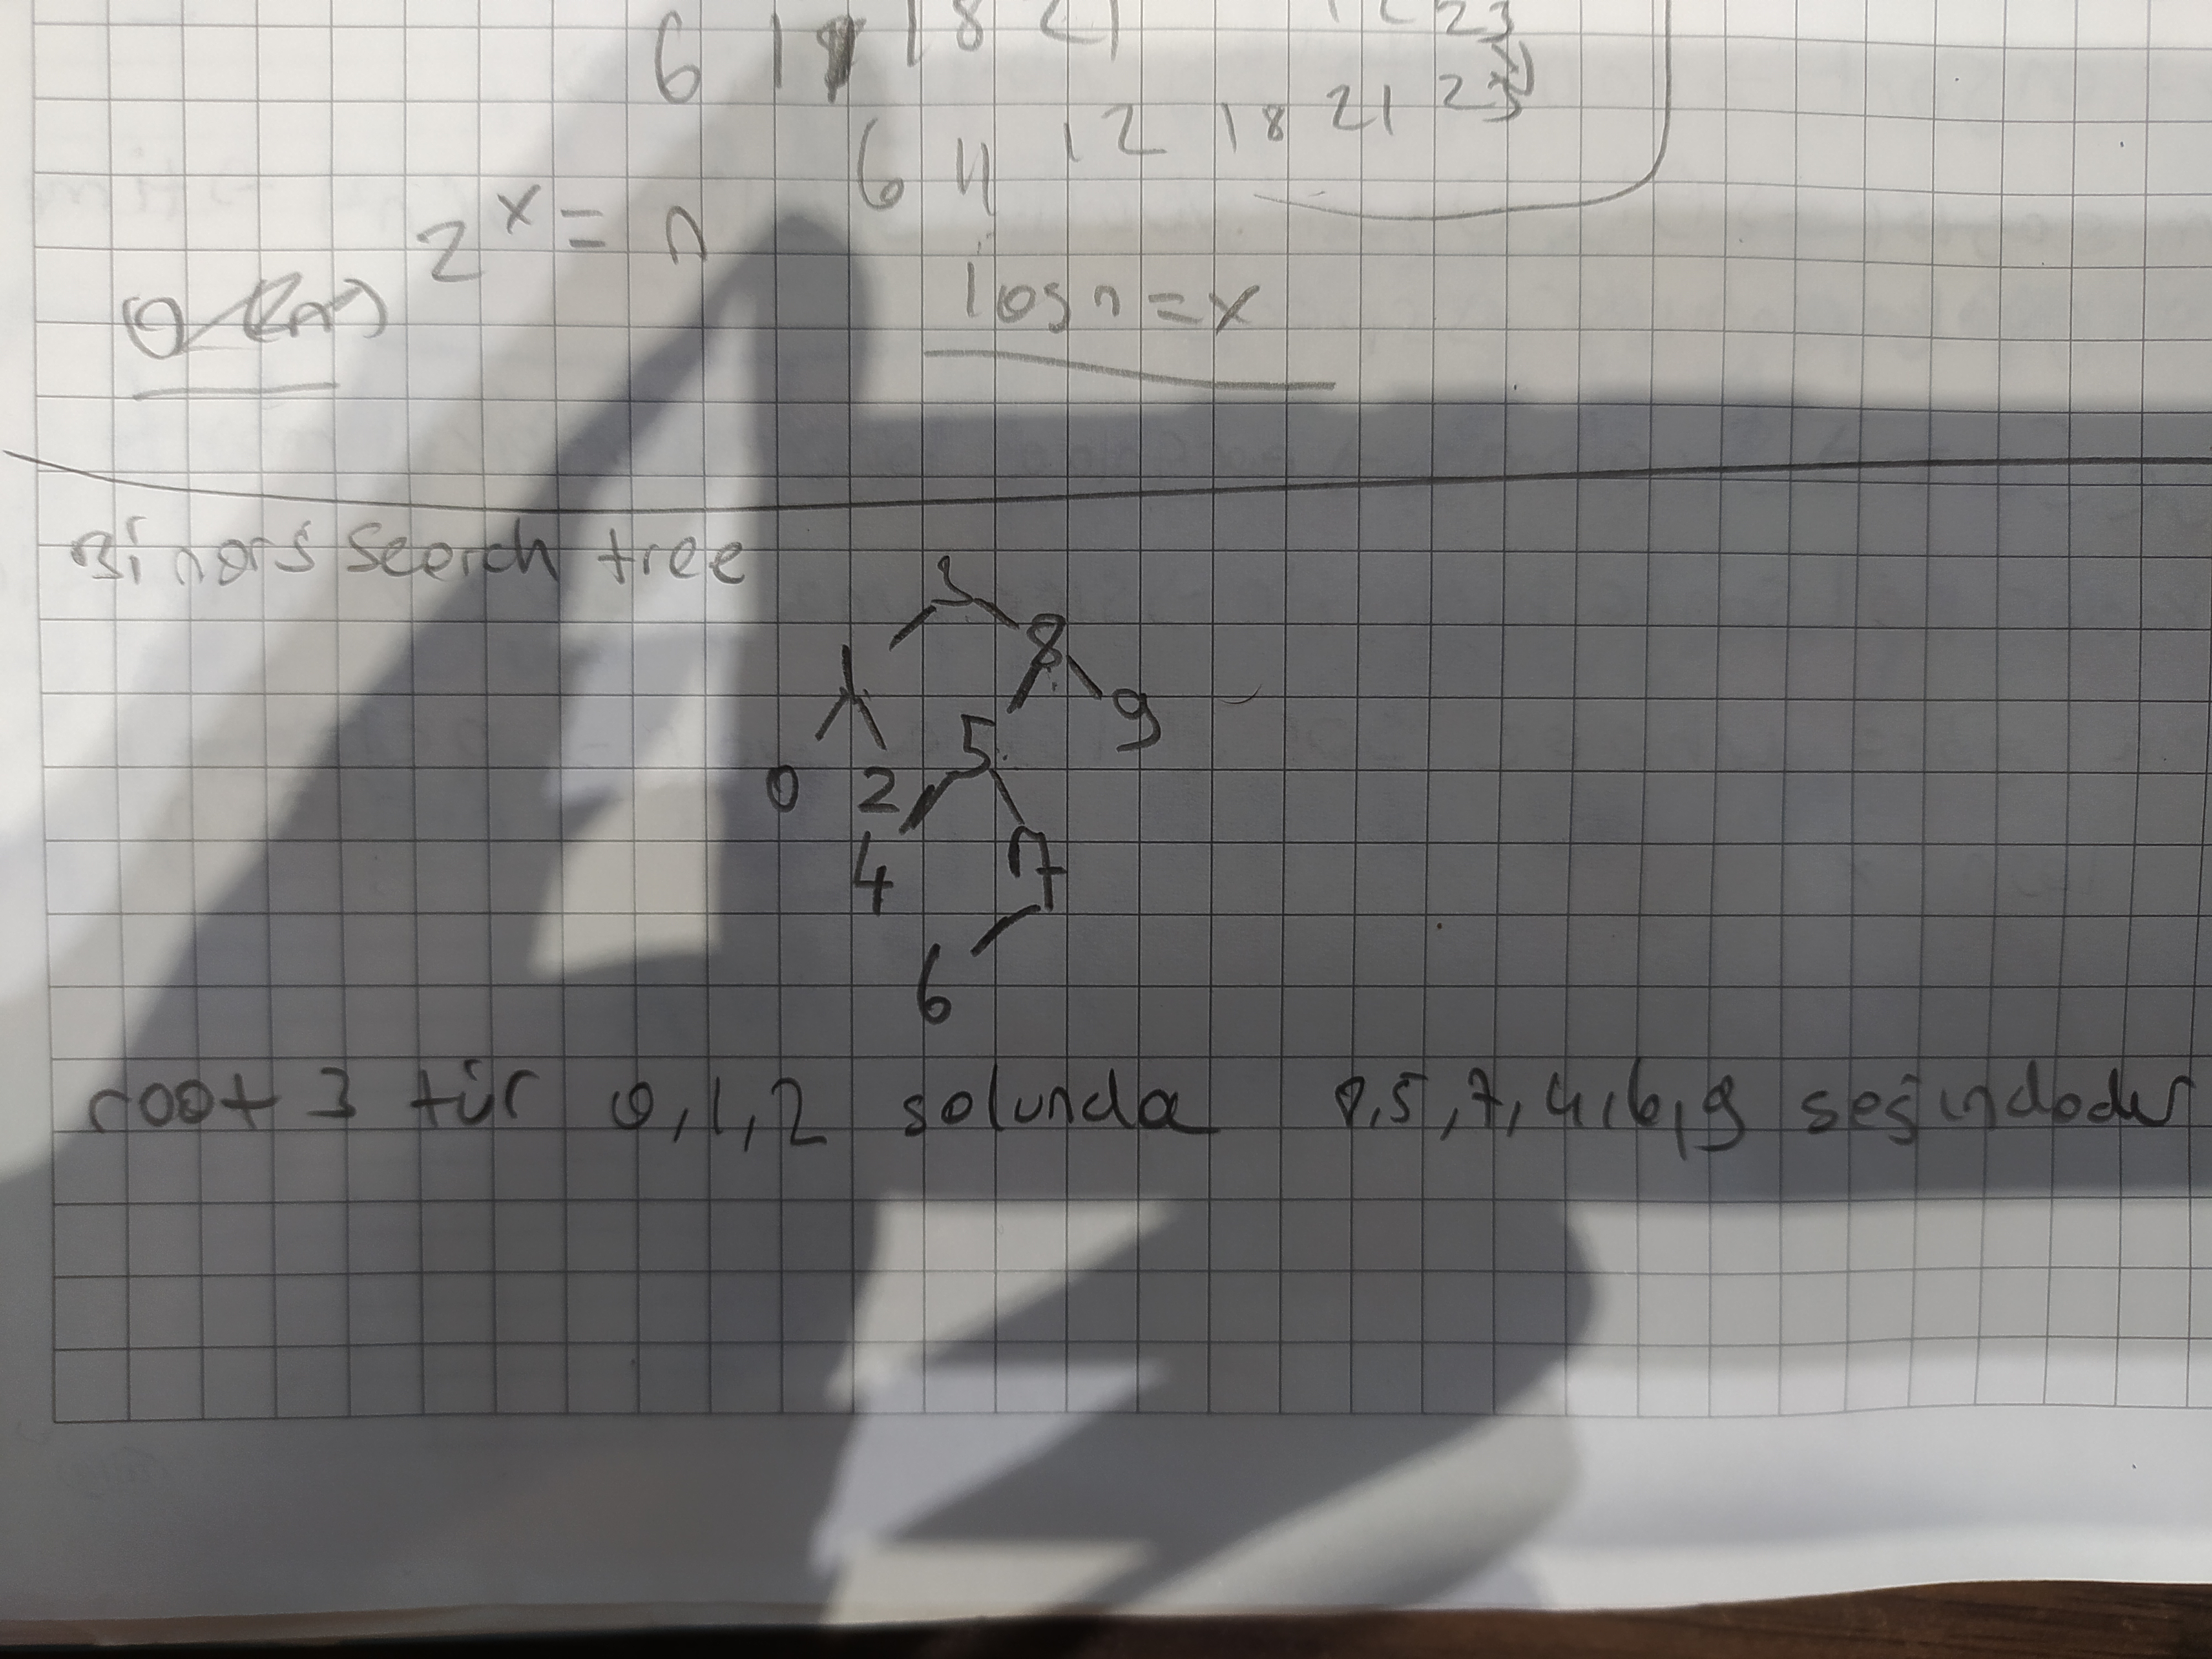 18 21 23
6 11
6 11 12 18 21 23
2^x = n
log n = x
Binary search tree
3
8
1
9
5
0 2
4 7
6
root 3 tür 0,1,2 solunda 8,5,7,4,6,9 sağındadır